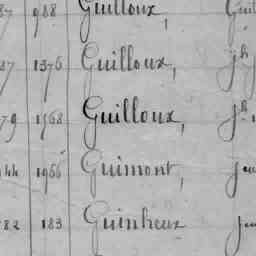 87 988 Guilloux,
87 1376 Guilloux, jh
79 1568 Guilloux, jh
44 1966 Guimont,
82 183 Guinheux